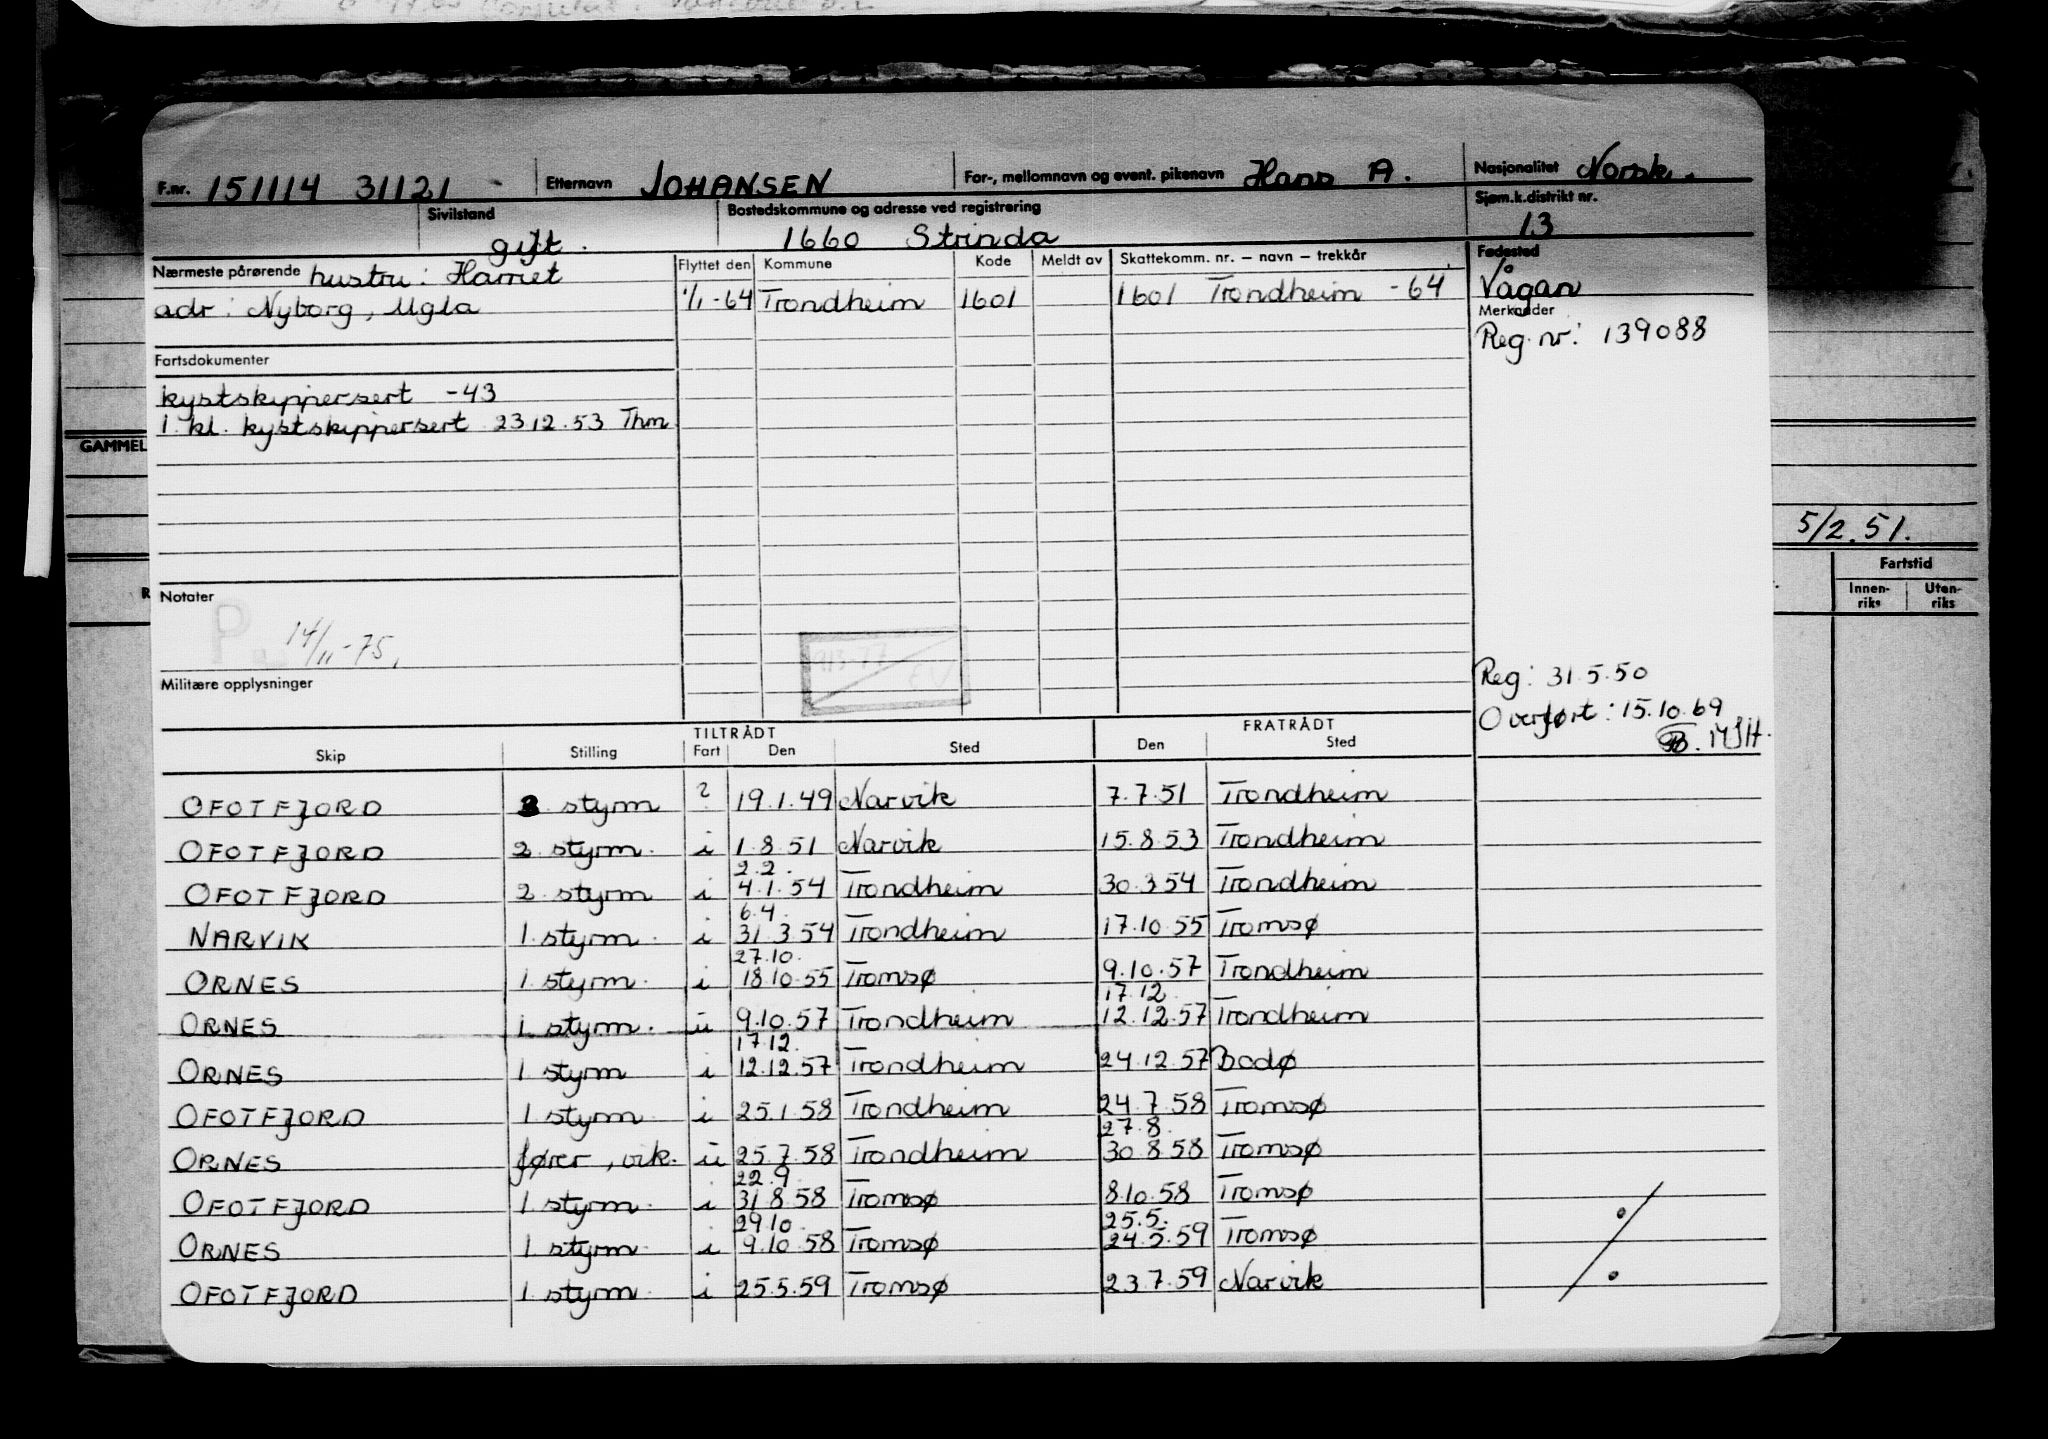 F.nr. 151114 31121 Etternavn JOHANSEN For-, mellomnavn og event. pikenavn Hans A. Nasjonalitet Norsk.
Sivilstand gift. Bostedskommune og adresse ved registrering 1660 Strinda Sjøm.k.distrikt nr. 13
Nærmeste pårørende hustru: Harriet Flyttet den Kommune Kode Meldt av Skattekomm. nr. – navn – trekkår Fødested Vågan
adr: Nyborg, Ugla 1/1-64 Trondheim 1601 1601 Trondheim -64
Merknader
Reg. nr: 139088
Fartsdokumenter
kystskippersert -43
1. kl. kystskippersert 23.12.53 Thm
GAMMEL
5/2.51.
Fartstid
Innen-riks Uten-riks
Notater
14/11-75.
Militære opplysninger
Reg: 31.5.50
Overført: 15.10.69
TILTRÅDT FRATRÅDT
Skip Stilling Fart Den Sted Den Sted
OFOTFJORD styrm ? 19.1.49 Narvik 7.7.51 Trondheim
OFOTFJORD 2. styrm. i 1.8.51 Narvik 15.8.53 Trondheim
2.2.
OFOTFJORD 2. styrm i 4.1.54 Trondheim 30.3.54 Trondheim
6.4.
NARVIK 1. styrm. i 31.3.54 Trondheim 17.10.55 Tromsø
27.10.
ORNES 1. styrm. i 18.10.55 Tromsø 9.10.57 Trondheim
17.12.
ORNES 1. styrm. u 9.10.57 Trondheim 12.12.57 Trondheim
17.12.
ORNES 1. styrm i 12.12.57 Trondheim 24.12.57 Bodø
OFOTFJORD 1. styrm. i 25.1.58 Trondheim 24.7.58 Tromsø
27.8.
ORNES fører, vik. u 25.7.58 Trondheim 30.8.58 Tromsø
22.9.
OFOTFJORD 1. styrm. i 31.8.58 Tromsø 8.10.58 Tromsø
29.10. 25.5.
ORNES 1. styrm. i 9.10.58 Tromsø 24.5.59 Tromsø
OFOTFJORD 1. styrm. i 25.5.59 Tromsø 23.7.59 Narvik